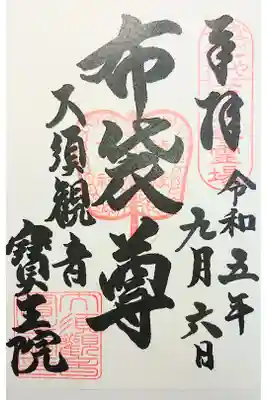 奉拝
令和五年
九月六日
布袋尊
大須観音
寶生院